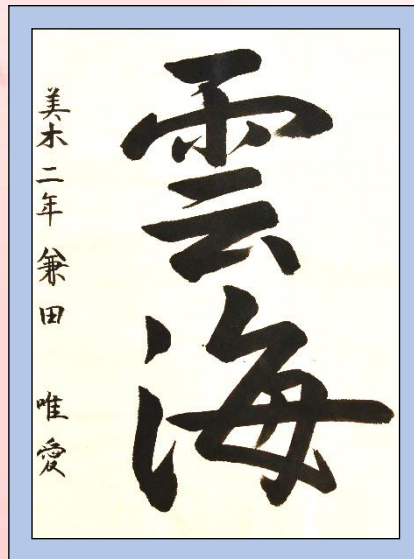 雲海
美木二年 兼田 唯愛